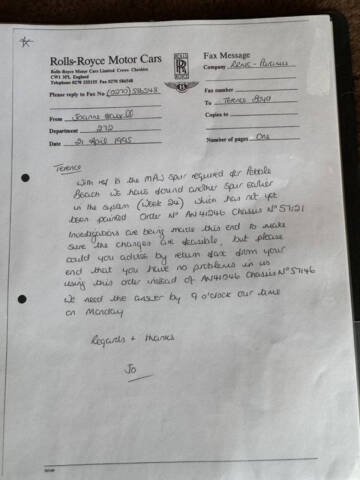 Rolls-Royce Motor Cars
Rolls-Royce Motor Cars Limited Crewe Cheshire
CW1 3PL England
Telephone 0270 255155 Fax 0270 586548
Please reply to Fax No (0270) 586548
From Joanne
Department 272
Date 21 April 1995
ROLLS
RR
ROYCE
B
Fax Message
Company
Fax number
To Terence
Copies to
Number of pages One
Terence
With ref to the MPW Spur required for Pebble
Beach. We have found another Spur earlier
in the system (Week 24) which has not yet
been painted Order Nº AN41246 Chassis Nº 57121
Investigations are being made this end to make
sure the changes are feasible, but please
could you advise by return fax from your
end that you have no problems in us
using this order instead of Chassis Nº 57146
We need the answer by 9 o'clock our time
on Monday
Regards + thanks
Jo